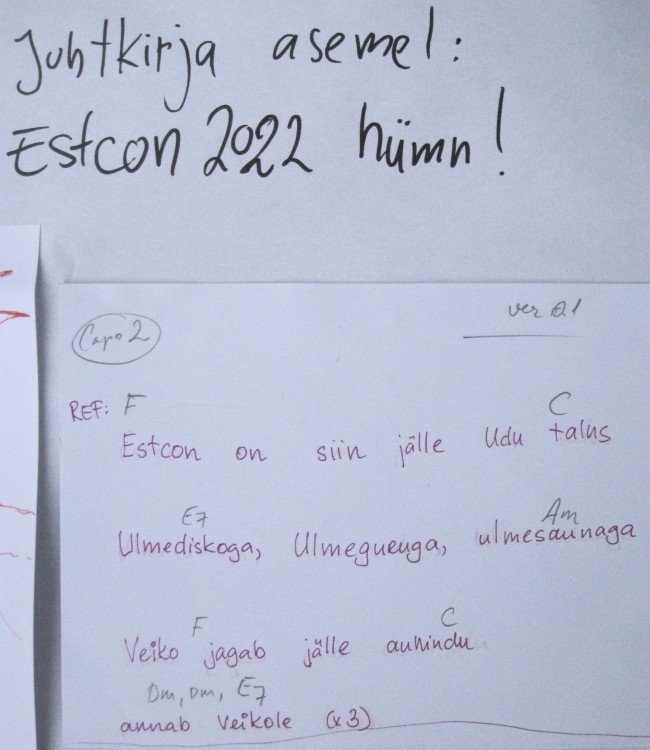 Juhtkirja asemel:
Estcon 2022 hümn!
Capo 2
ver 0.1
REF: F C
Estcon on siin jälle Udu talus
E7 Am
Ulmediskoga, Ulmequenga, ulmesaunaga
F C
Veiko jagab jälle auhindu
Dm, Dm, E7
annab Veikole (x3)